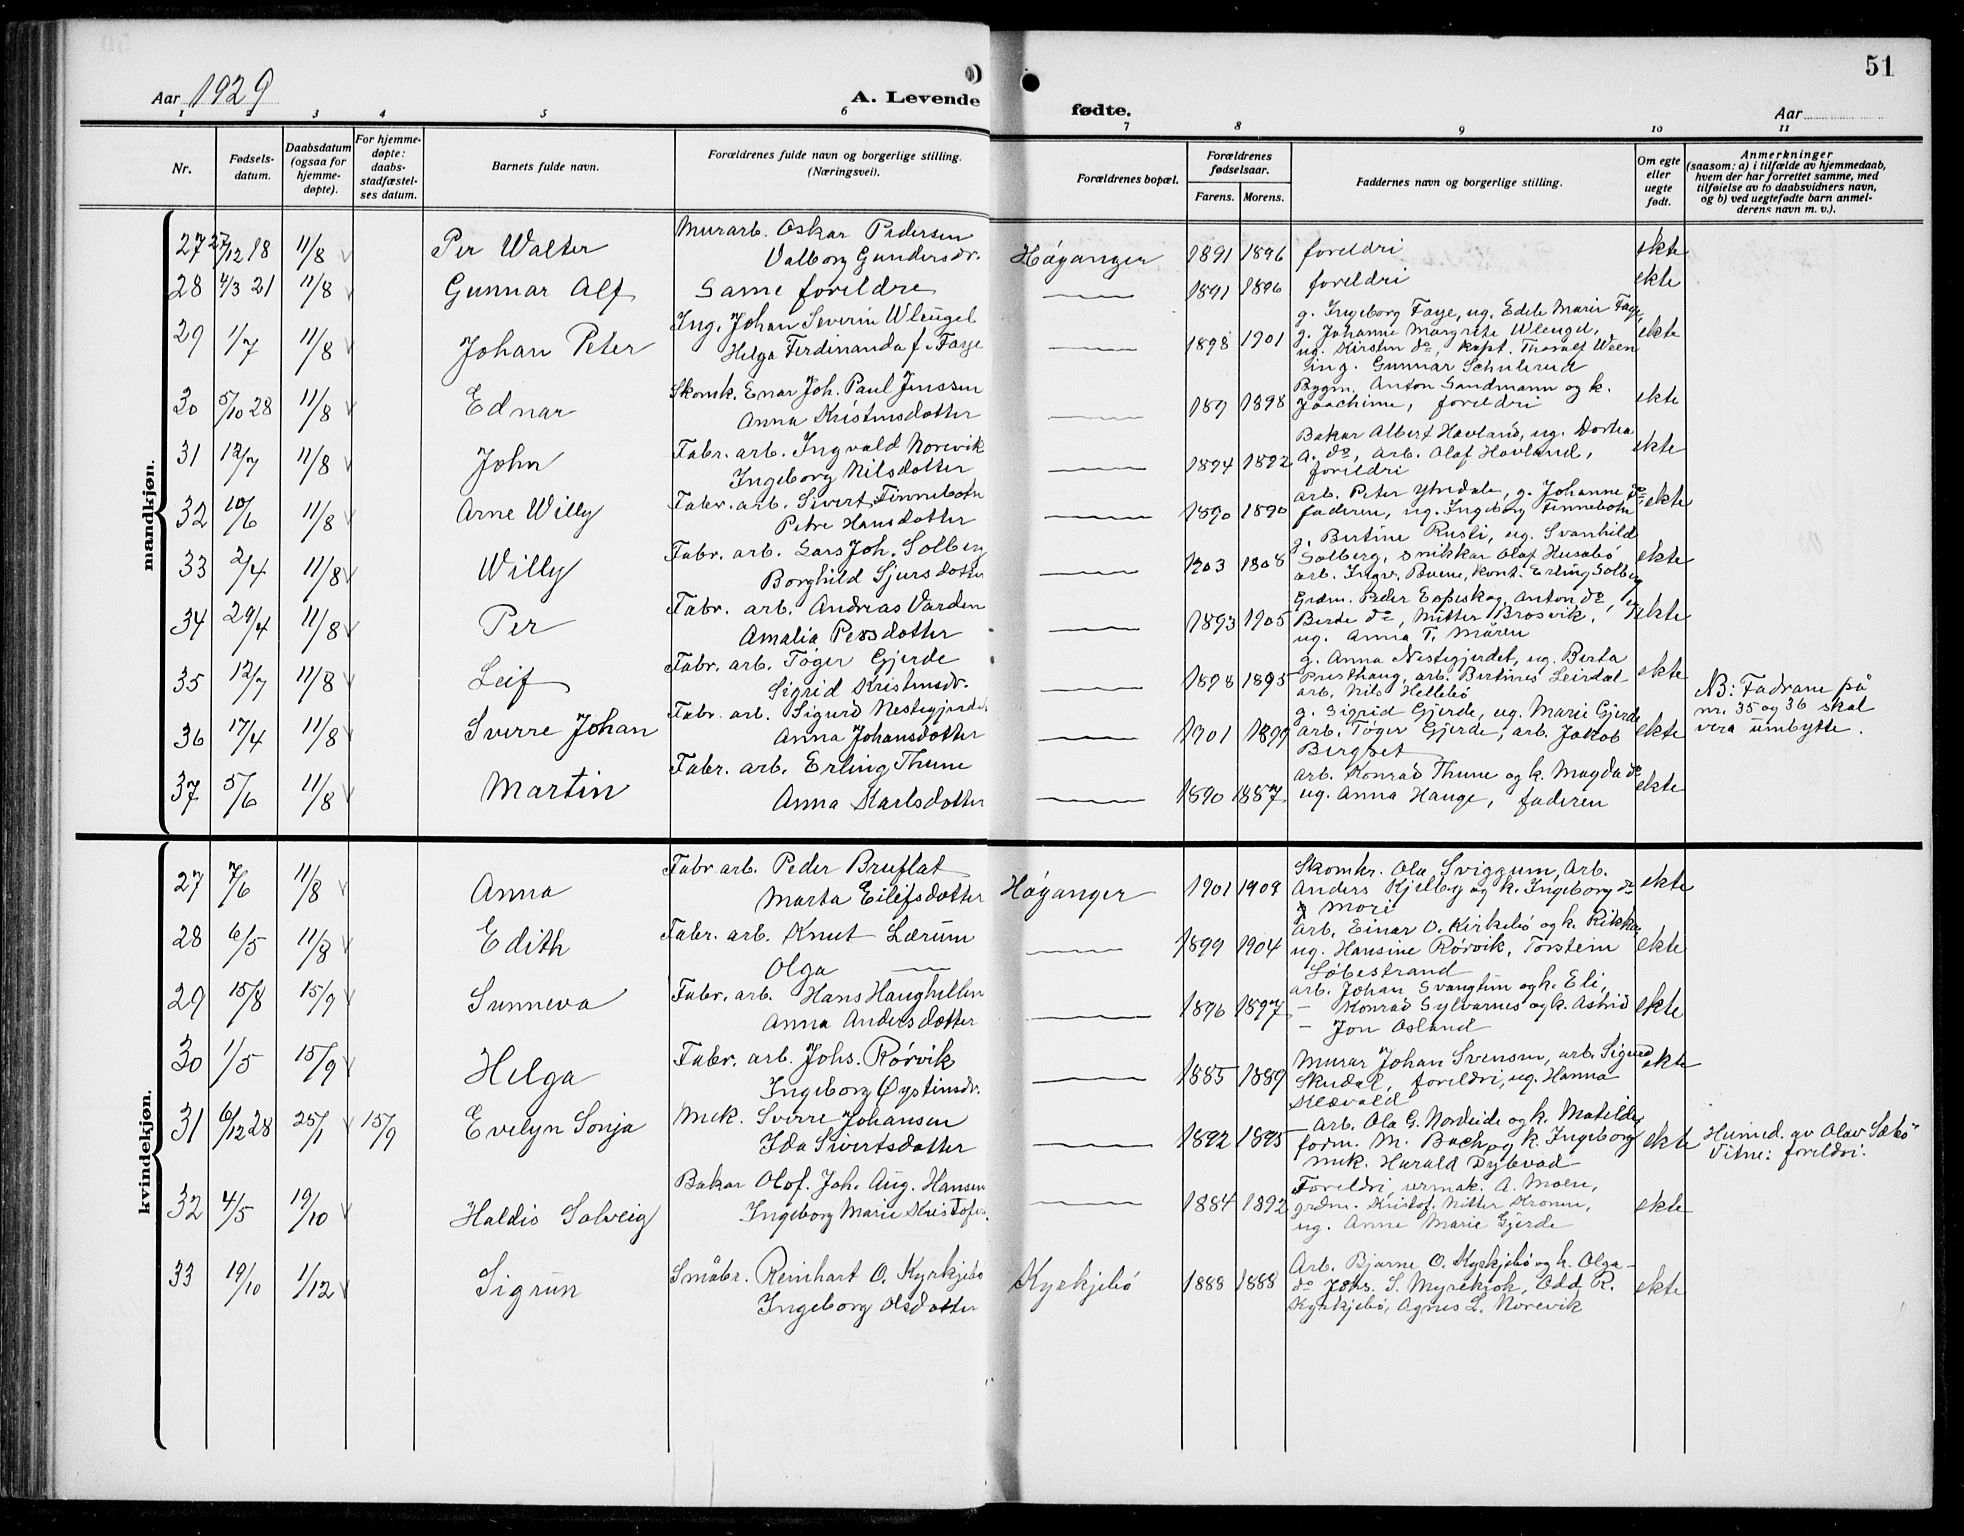 51
Aar 1929
A. Levende fødte.
Aar
1 2 3 4 5 6 7 8 9 10 11
Nr.
Fødsels-
datum.
Daabsdatum
(ogsaa for
hjemme-
døpte).
For hjemme-
døpte:
daabs-
stadfæstel-
ses datum.
Barnets fulde navn.
Forældrenes fulde navn og borgerlige stilling.
(Næringsvei).
Forældrenes bopæl.
Forældrenes
fødselsaar.
Farens. Morens.
Faddernes navn og borgerlige stilling.
Om egte
eller
uegte
født.
Anmerkninger
(saasom: a) i tilfælde av hjemmedaab,
hvem der har forrettet samme, med
tilføielse av to daabsvidners navn,
og b) ved uegtefødte barn anmel-
derens navn m. v.).
mandkjøn.
27 27/12 18 11/8 Per Walter Murarb. Oskar Pedersen
Valborg Gundersdr. Høyanger 1891 1896 foreldri ekte
28 4/3 21 11/8 Gunnar Alf Same foreldre — 1891 1896 foreldri ekte
29 1/7 11/8 Johan Peter Ing. Johan Severin Wleugel
Helga Ferdinanda f. Faye — 1898 1901 ekte
g. Ingeborg Faye, ug. Edele Marie Faye,
g. Johanne Margrete Wleugel,
ug. Kirsten do, kapt. Thoralf Ween
ing. Gunnar Schulerud
30 5/10 28 11/8 Ednar Skomk. Enar Joh. Paul Jenssen
Anna Kristensdotter — 189 1898 ekte
Bygm. Anton Sandmann og k.
Joachime, foreldri
31 12/7 11/8 John Fabr. arb. Ingvald Norevik
Ingeborg Nilsdotter — 1894 1892 ekte
Bakar Albert Hovland, ug. Dortea
A. do, Arb. Olaf Hovland,
foreldri
32 10/6 11/8 Arne Willy Fabr. arb. Sivert Finnebotn
Petre Hansdotter — 1890 1890 ekte
arb. Peter Ytredale, g. Johanne do
faderen, ug. Ingeborg Finnebotn
33 2/4 11/8 Willy Fabr. arb. Lars Joh. Solberg
Borghild Sjursdotter — 1903 1808 ekte
g. Bertine Rusti, ug. Svanhild
Solberg, snikkar Olaf Husabø
arb. Ingv. Buene, kont. Erling Solberg
34 29/4 11/8 Per Fabr. arb. Andreas Varden
Amalia Persdotter — 1893 1905 ekte
Grdm. Peder Eppeskog, Anton do, ug
Berte do, Nitter Brosvik,
ug. Anna T. Mären
35 12/7 11/8 Leif Fabr. arb. Tøger Gjerde
Sigrid Kristensdr. — 1898 1895 ekte
g. Anna Nestegjerdet, ug. Berta
Presthaug, arb. Bertinus Leirdal
arb. Nils Hellebø
NB: Fadrane på
nr. 35 og 36 skal
vera umbytte.
36 17/4 11/8 Sverre Johan Fabr. arb. Sigurd Nestegjerdet
Anna Johansdotter — 1901 1899 ekte
g. Sigrid Gjerde, ug. Marie Gjerde
arb. Tøger Gjerde, arb. Jakob
Bergset
37 5/6 11/8 Martin Fabr. arb. Erling Thune
Anna Karlsdotter — 1890 1887 ekte
arb. Konrad Thune og k. Magda do
ug. Anna Hauge, faderen
kvindekjøn.
27 7/6 11/8 Anna Fabr arb. Peder Bruflat
Marta Eilifsdotter Høyanger 1901 1909 ekte
Skomkr. Ola Sviggum, Arb.
Anders Kjelby og k. Ingeborg do
Mori
28 6/5 11/8 Edith Fabr. arb. Knut Lærum
Olga — — 1899 1904 ekte
arb. Einar O. Kirkebø og k. Rikka
ug. Hansine Rørvik, Torstein
Løbestrand
29 15/8 15/9 Sunneva Fabr. arb. Hans Haughellen
Anna Andersdotter — 1896 1897 ekte
arb. Johan Svangtun og k. Eli,
— Konrad Sylvarnes og k. Astrid
— Jon Osland
30 1/5 15/9 Helga Fabr. arb. Johs. Rørvik
Ingeborg Øysteinsdr. — 1885 1889 ekte
Murar Johan Svensen, arb. Sigurd
Skudal, foreldri, ug. Hanna
Klævold
31 6/12 28 25/1 15/9 Evelyn Sonja Mek. Sverre Johansen
Ida Sivertsdotter — 1892 1895 ekte
— Arb. Ola G. Nordeide og k. Matilde
form. M. Bach og k. Ingeborg
mek. Harald Dybvad
Heimed. av Olav Sæbø
Vitne: foreldri.
32 4/5 19/10 Haldis Solveig Bakar Olof. Joh. Aug. Hansen
Ingeborg Marie Kristofer. — 1884 1892 ekte
Foreldri, urmak. A. Moen,
grdm. Kristof. Nitter Kronen,
ug. Anne Marie Gjerde
33 19/10 1/12 Sigrun Småbr. Reinhart O. Kyrkjebø
Ingeborg Olsdotter Kyrkjebø 1888 1888 ekte
Arb. Bjarne O. Kyrkjebø og k. Olga —
do Johs. S. Myrekrok, Odd R.
Kyrkjebø, Agnes L. Norevik